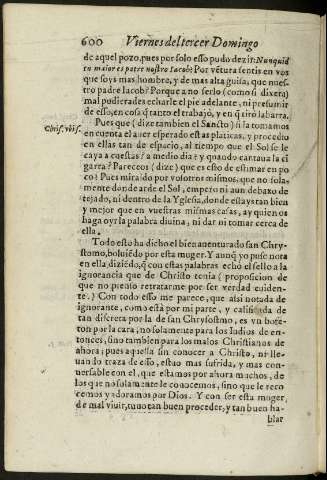 600 Viernes del tercer Domingo
de aquel pozo, pues por solo esso pudo dezir: Nunquid
tu maior es patre nostro Iacob? Por vẽtura sentis en vos
que soys mas hombre, y de mas alta guisa, que nues-
tro padre Iacob? Porque a no serlo (como si dixera)
mal pudierades echarle el pie adelante, ni presumir
de esso, en cosa q̃ tanto el trabajó, y en q̃ tiró la barra.
Chris. vbi s.
Pues que (dize tambien el Sancto) si la tomamos
en cuenta el auer esperado estas platicas, y procedio
en ellas tan de espacio, al tiempo que el Sol se le
caya a cuestas? a medio dia? y quando cantaua la ci
garra? Pareceos (dize) que es esto de estimar en po
co? Pues miraldo por vosotros mismos, que no sola-
mente donde arde el Sol, empero ni aun debaxo de
tejado, ni dentro de la Yglesia, donde estays tan bien
y mejor que en vuestras mismas casas, ay quien os
haga oyr la palabra diuina, ni dar ni tomar cerca de
ella.
Todo esto ha dicho el bienauenturado san Chry-
stomo, boluiẽdo por esta muger. Y aunq̃ yo puse nota
en ella, diziẽdo, q̃ con estas palabras echó el sello a la
ignorancia que de Christo tenia (proposicion de
que no pienso retratarme por ser verdad euiden-
te.) Con todo esso me parece, que assi notada de
ignorante, como está por mi parte, y calificada de
tan discreta por la de san Chrysostmo, es vn bofe-
ton por la cara; no solamente para los Iudios de en-
tonces, sino tambien para los malos Christianos de
ahora; pues aquella sin conocer a Christo, ni lle-
uando traza de esso, estuo mas sufrida, y mas con-
uersable con el, que estamos por ahora muchos, de
los que no solamente le conocemos, sino que le reco
cemos y adoramos por Dios. Y con ser esta muger,
de mal viuir, tuuo tan buen proceder, y tan buen ha-
blar